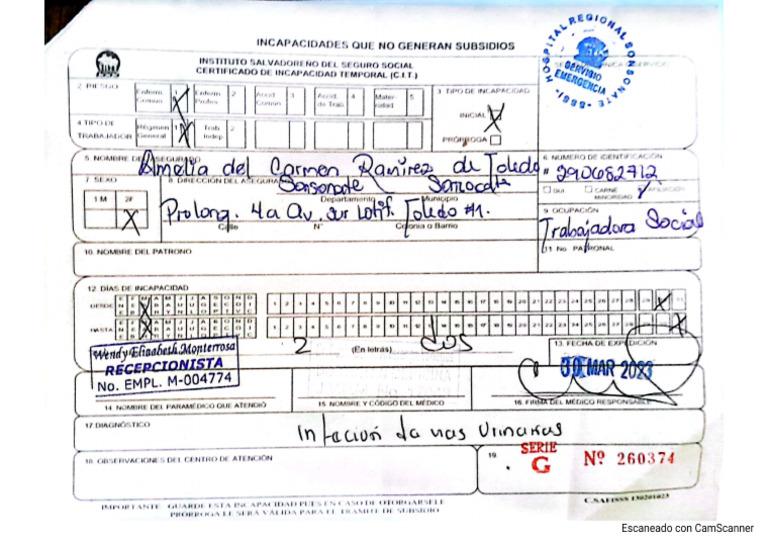 INCAPACIDADES QUE NO GENERAN SUBSIDIOS
INSTITUTO SALVADOREÑO DEL SEGURO SOCIAL
CERTIFICADO DE INCAPACIDAD TEMPORAL (C.I.T.)
HOSPITAL REGIONAL SONSONATE
SERVICIO
EMERGENCIA
ISSS
2 RIESGO
Enferm. Comun 1 X
Enferm. Profes. 2
Accid. Comun 3
Accid. de Trab. 4
Maternidad 5
3 TIPO DE INCAPACIDAD
INICIAL X
PRÓRROGA
4 TIPO DE TRABAJADOR
Régimen General 1 X
Trab. Indep. 2
5. NOMBRE DEL ASEGURADO
Amelia del Carmen Ramírez de Toledo
6 NUMERO DE IDENTIFICACIÓN
# 290682712
DUI CARNE MINORIDAD AFILIACIÓN
7. SEXO
1 M 2F X
8 DIRECCIÓN DEL ASEGURADO
Sonsonate
Departamento Municipio
Prolong. 4a Av. Sur Lotif. Toledo #1.
Calle N° Colonia o Barrio
9. OCUPACIÓN
Trabajadora Social
10. NOMBRE DEL PATRONO
11. No PATRONAL
12. DIAS DE INCAPACIDAD
DESDE
HASTA
2 (En letras) dos
13. FECHA DE EXPEDICIÓN
30 MAR 2023
Wendy Elizabeth Monterrosa
RECEPCIONISTA
No. EMPL. M-004774
14 NOMBRE DEL PARAMÉDICO QUE ATENDIÓ
15. NOMBRE Y CÓDIGO DEL MÉDICO
16. FIRMA DEL MÉDICO RESPONSABLE
17. DIAGNÓSTICO
18. OBSERVACIONES DEL CENTRO DE ATENCIÓN
19.
SERIE
G
Nº 260374
C.SAFISSS 130201023
IMPORTANTE GUARDE ESTA INCAPACIDAD PUES EN CASO DE OTORGARSELE
PRÓRROGA LE SERÁ VÁLIDA PARA EL TRÁMITE DE SUBSIDIO
Escaneado con CamScanner